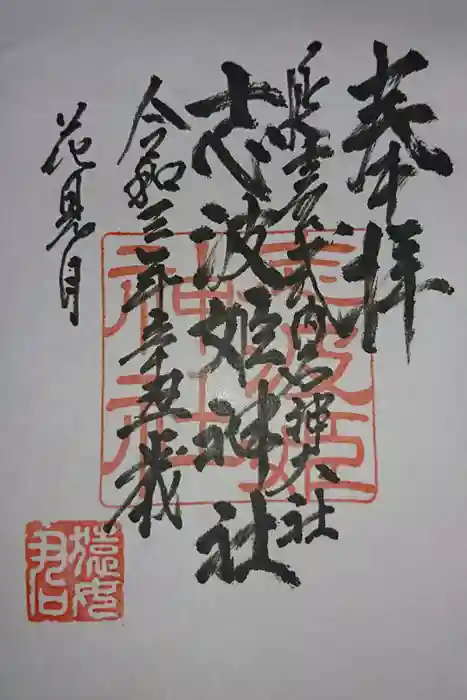 奉拝
延喜式内名神大社
志波姫神社
令和三年辛丑歳
花見月
志波姫
神社